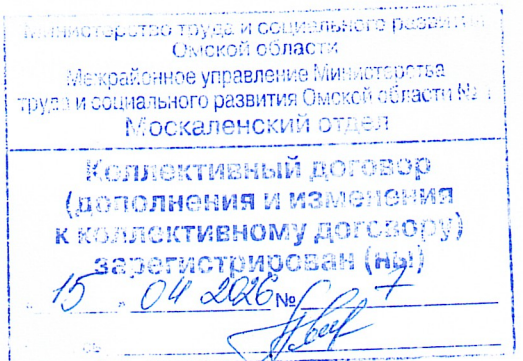 Министерство труда и социального развития
Омской области
Межрайонное управление Министерства
труда и социального развития Омской области №
Москаленский отдел
Коллективный договор
(дополнения и изменения
к коллективному договору)
зарегистрирован (ны)
15 . 04 2026 № 7